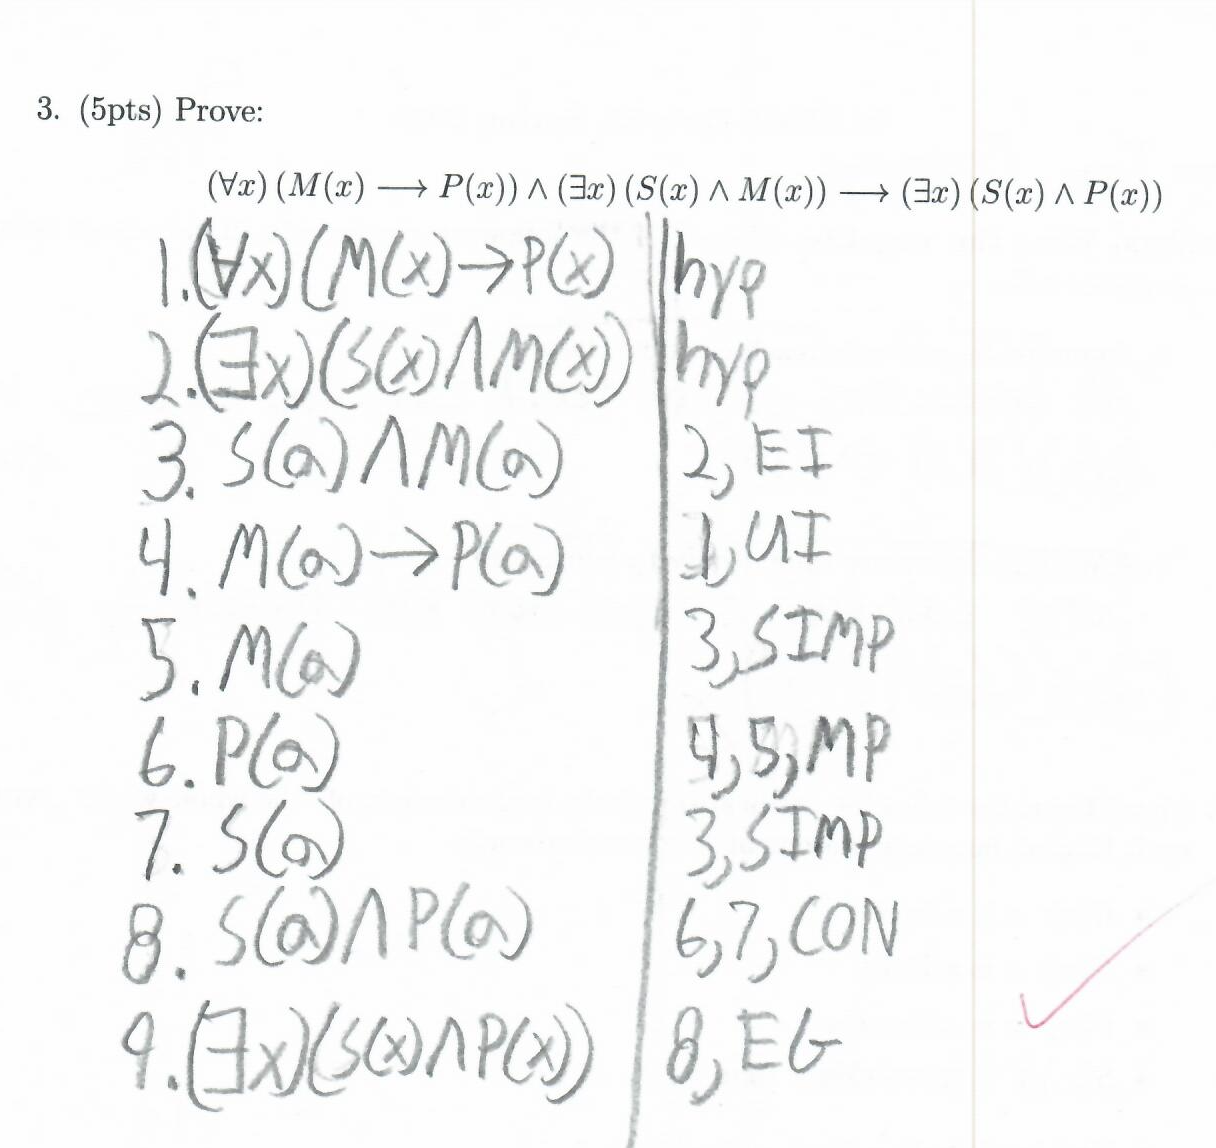 3. (5pts) Prove:
(∀x) (M(x) ⟶ P(x)) ∧ (∃x) (S(x) ∧ M(x)) ⟶ (∃x) (S(x) ∧ P(x))
1.(∀x)(M(x)→P(x) hyp
2.(∃x)(S(x)∧M(x)) hyp
3. S(a)∧M(a) 2, EI
4. M(a)→P(a) 1, UI
5. M(a) 3, SIMP
6. P(a) 4, 5, MP
7. S(a) 3, SIMP
8. S(a)∧P(a) 6, 7, CON
9.(∃x)(S(x)∧P(x)) 8, EG